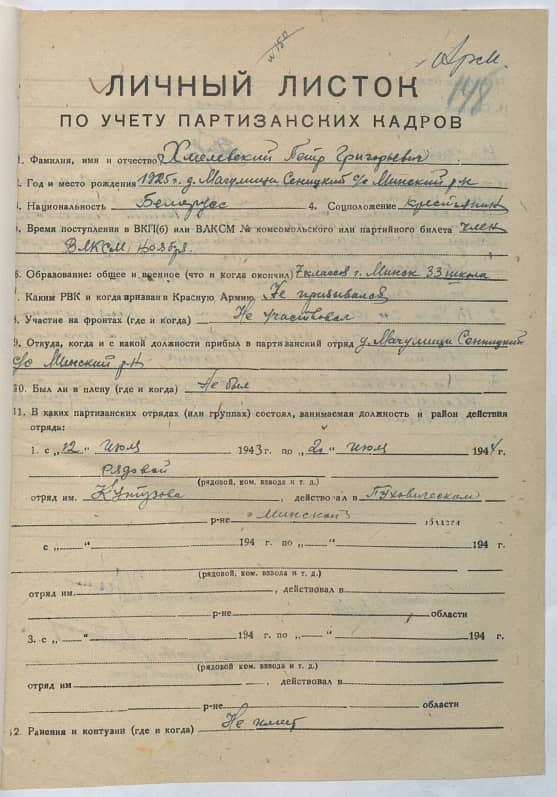 148
ЛИЧНЫЙ ЛИСТОК
ПО УЧЕТУ ПАРТИЗАНСКИХ КАДРОВ
1. Фамилия, имя и отчество Хмелевский Петр Григорьевич
2. Год и место рождения 1925 г. д. Мачулищи Сеницкий с/с Минский р-н
3. Национальность Белорус 4. Соцположение крестьянин
5. Время поступления в ВКП(б) или ВЛКСМ № комсомольского или партийного билета член
ВЛКСМ ноябрь
6. Образование: общее и военное (что и когда окончил) 7 классов г. Минск 33 школа
7. Каким РВК и когда призван в Красную Армию Не призывался
8. Участие на фронтах (где и когда) Не участвовал
9. Откуда, когда и с какой должности прибыл в партизанский отряд д. Мачулищи Сеницкий
с/с Минский р-н
10. Был ли в плену (где и когда) Не был
11. В каких партизанских отрядах (или группах) состоял, занимаемая должность и район действия
отряда:
1. с „12“ июля 1943 г. по „ “ июля 1944 г.
рядовой
(рядовой, ком. взвода и т. д.)
отряд им. Кутузова, действовал в Пуховическом
р-не Минской области
с „ “ 194 г. по „ “ 194 г.
(рядовой, ком. взвода и т. д.)
отряд им. , действовал в
р-не области
3. с „ “ 194 г. по „ “ 194 г.
(рядовой, ком. взвода и т. д.)
отряд им , действовал в
р-не области
12. Ранения и контузии (где и когда) Не имеет